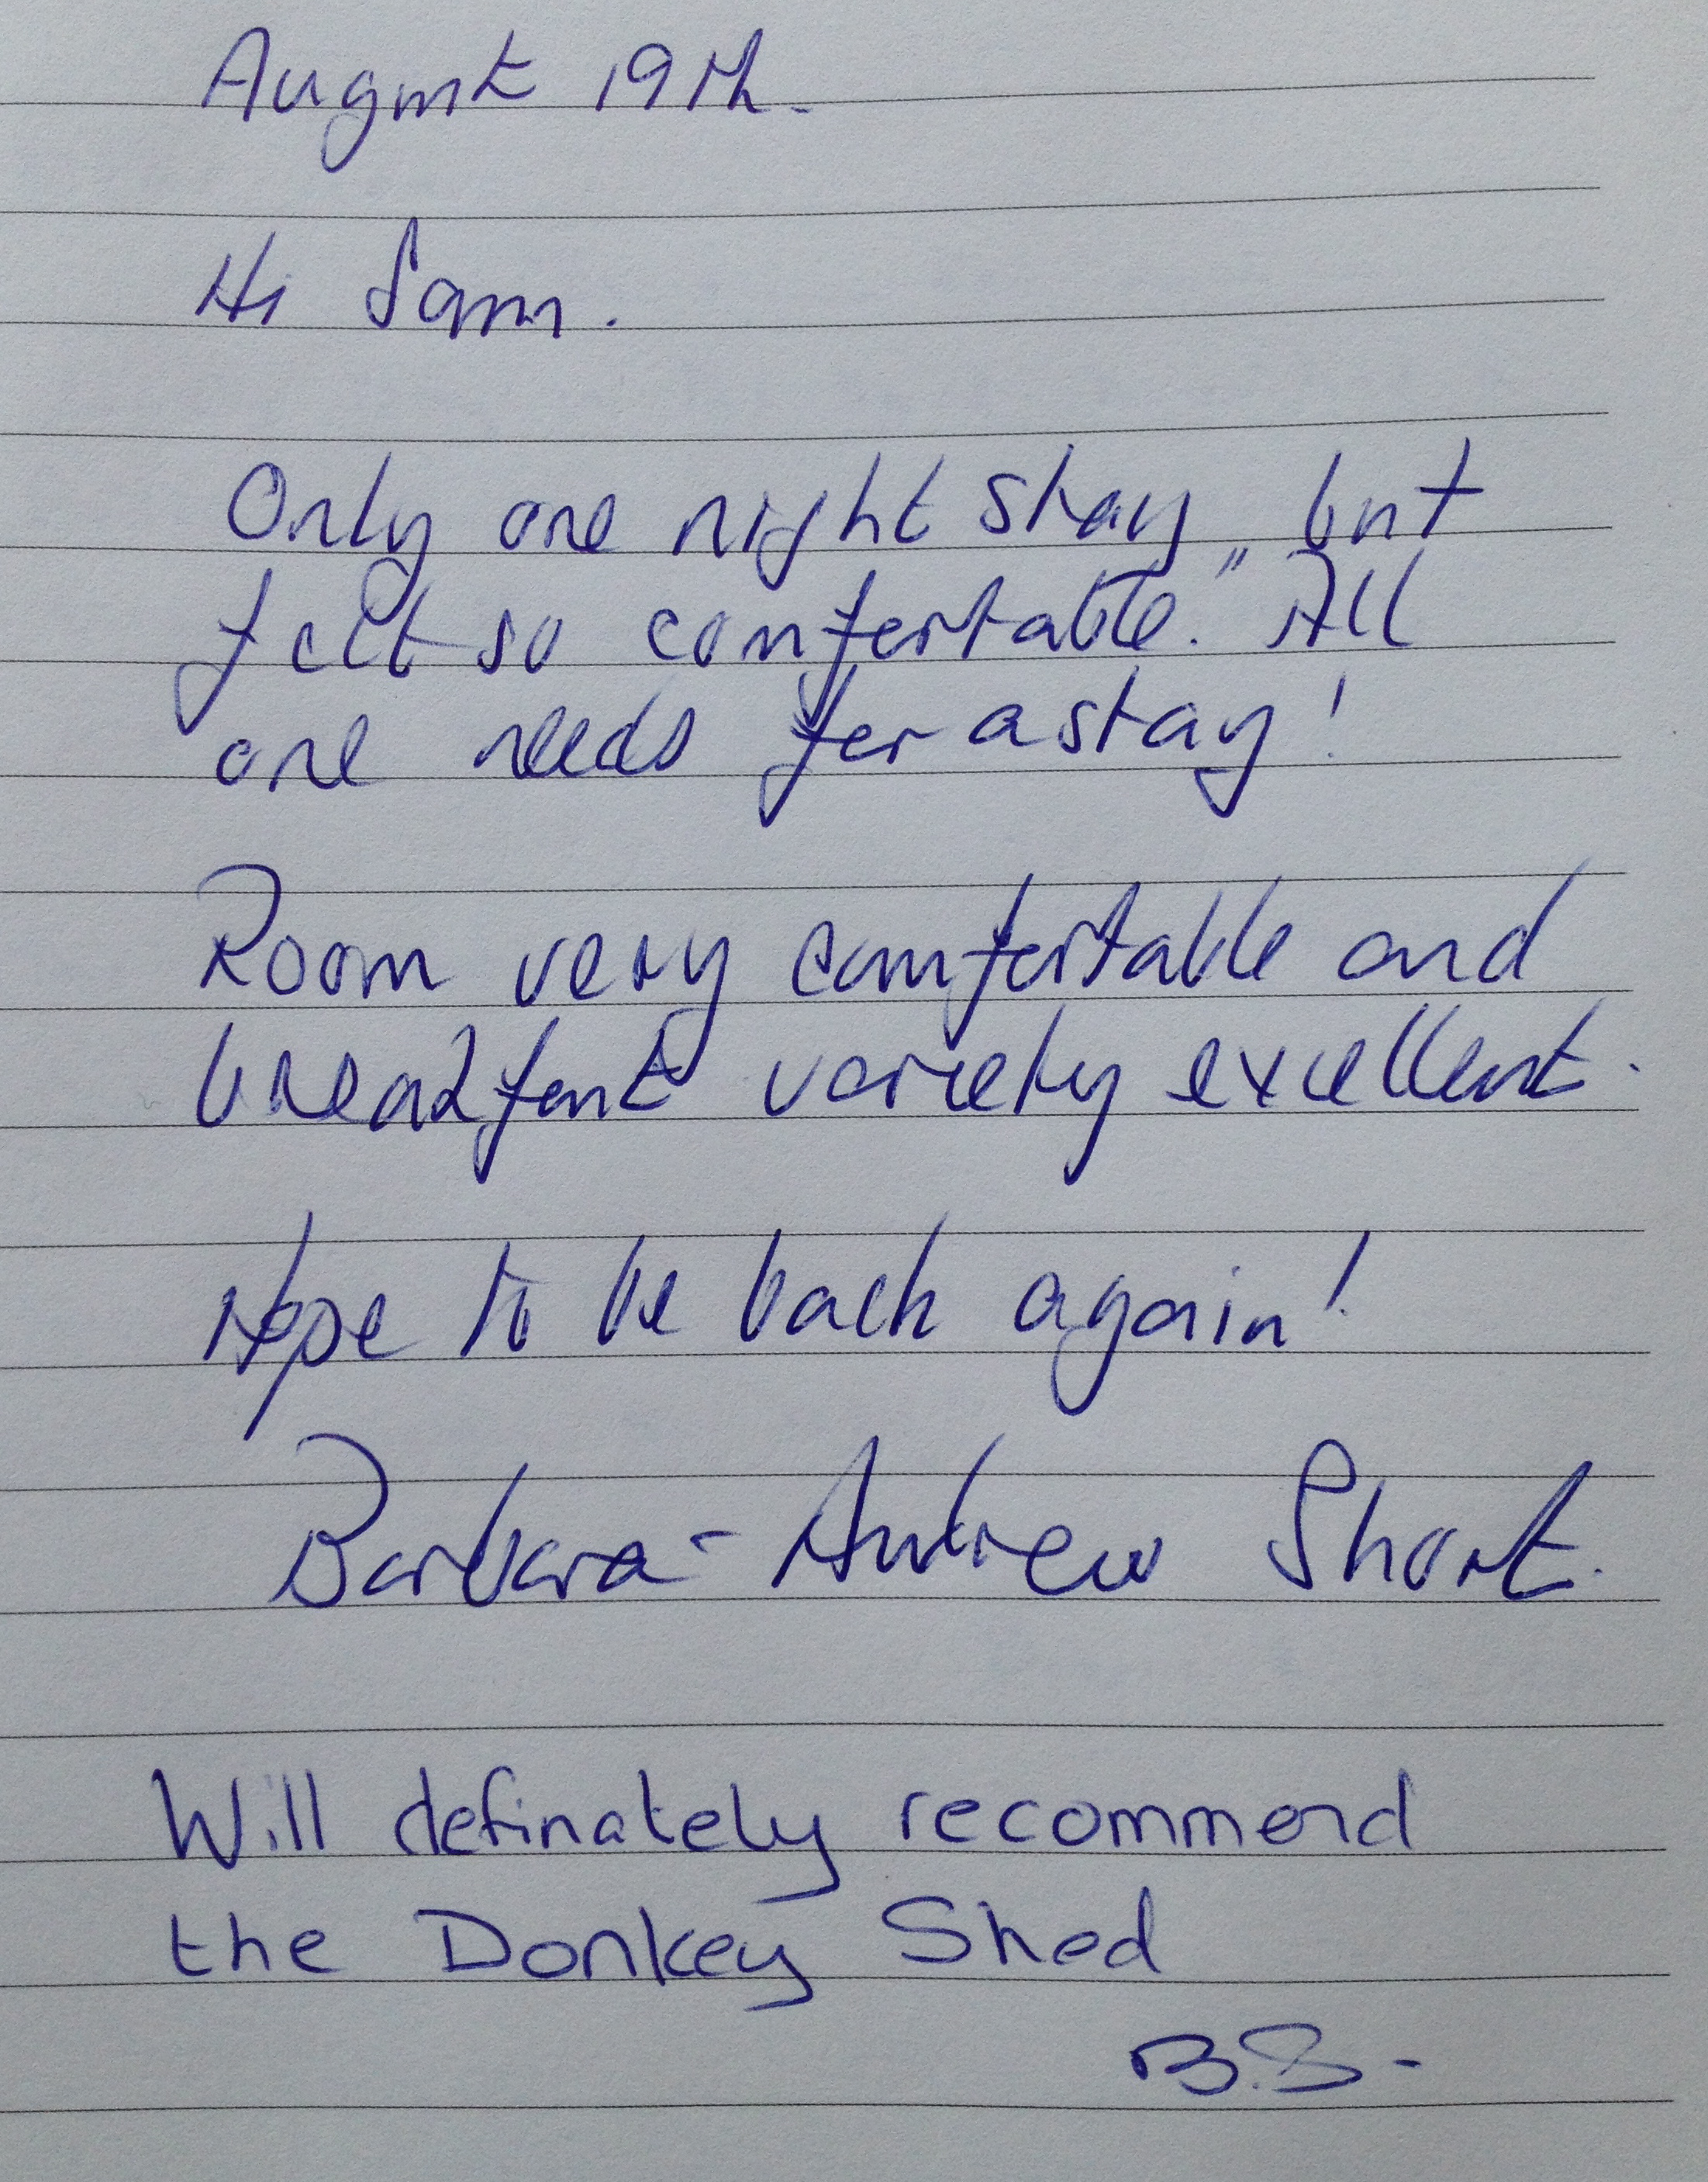 August 19th.
Hi Sam.
Only one night stay, but
felt so comfortable." All
one needs for a stay!
Room very comfortable and
breakfast variety excellent.
Hope to be back again!
Barbara - Andrew Short.
Will definately recommend
the Donkey Shed
B.S-